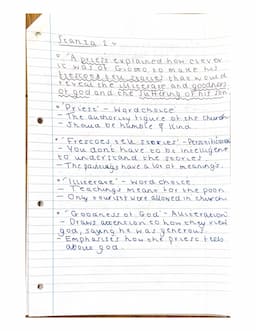 Stanza 1.
• "A priest explained how clever
it was of Giotto to make his
frescoes tell stories that would
reveal the illiterate and goodness
of god and the suffering of his son
• 'Priest' - Word choice
- The authority figure of the church
- Should be humble & kind
• 'Frescoes tell stories' - Personification
- You don't have to be intelligent
to understand the stories.
- The paintings have a lot of meanings.
• 'Illiterate' - Word choice
- Teachings meant for the poor.
- Only tourist were allowed in church.
• 'Goodness of God' - Alliteration
- Draws attention to how they view
god, saying he was generous.
- Emphasises how the priest tells
about god.